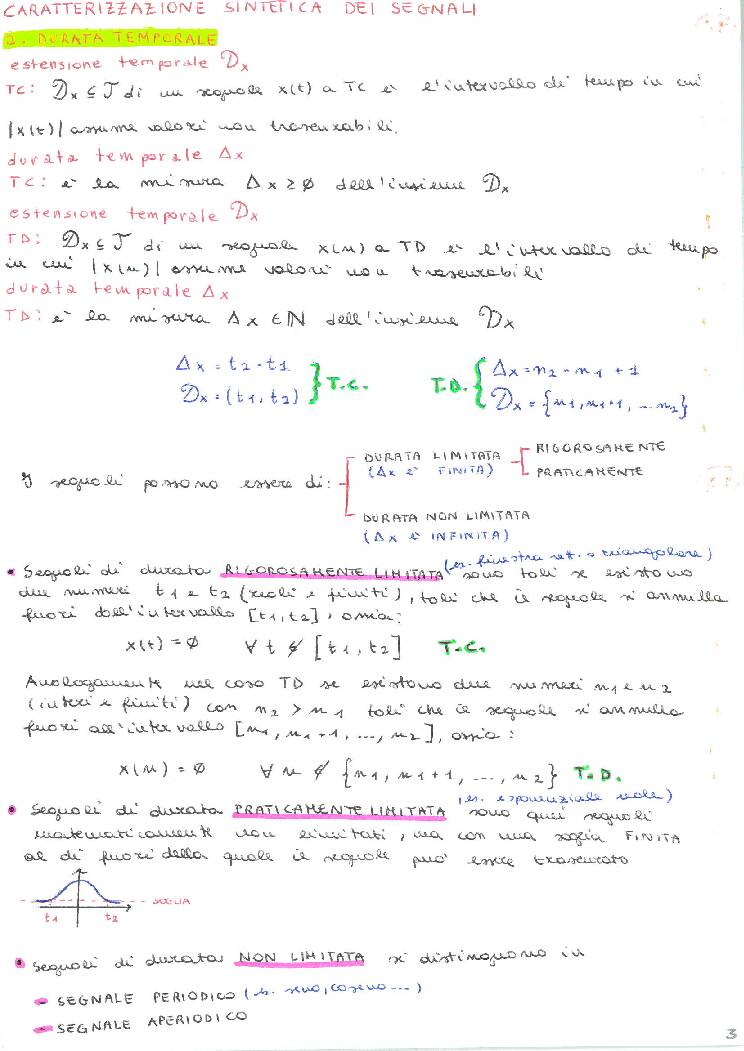 CARATTERIZZAZIONE SINTETICA DEI SEGNALI
2. DURATA TEMPORALE
estensione temporale Dx
TC: Dx ⊆ T di un segnale x(t) a TC è l'intervallo di tempo in cui
|x(t)| assume valori non trascurabili.
durata temporale Δx
TC: è la misura Δx ≥ 0 dell'insieme Dx
estensione temporale Dx
TD: Dx ⊆ T di un segnale x(n) a TD è l'intervallo di tempo
in cui |x(n)| assume valori non trascurabili
durata temporale Δx
TD: è la misura Δx ∈ ℕ dell'insieme Dx
Δx = t2 - t1
Dx = (t1, t2) } T.C.
T.D. { Δx = n2 - n1 + 1
Dx = {n1, n1+1, ... n2}
I segnali possono essere di:
DURATA LIMITATA
(Δx è FINITA)
RIGOROSAMENTE
PRATICAMENTE
DURATA NON LIMITATA
(Δx è INFINITA)
• Segnali di durata RIGOROSAMENTE LIMITATA (es. finestra rett. o triangolare) sono tali se esistono
due numeri t1 e t2 (reali e finiti), tali che il segnale si annulla
fuori dall'intervallo [t1, t2], ossia:
x(t) = 0 ∀ t ∉ [t1, t2] T.C.
Analogamente nel caso TD se esistono due numeri n1 e n2
(interi e finiti) con n2 > n1 tali che il segnale si annulla
fuori all'intervallo [n1, n1+1, ..., n2], ossia:
x(n) = 0 ∀ n ∉ {n1, n1+1, ..., n2} T.D.
• Segnali di durata PRATICAMENTE LIMITATA (es. esponenziale vale) sono quei segnali
matematicamente non limitati, ma con una soglia FINITA
al di fuori della quale il segnale può essere trascurato
SOGLIA
t1 t2
• Segnali di durata NON LIMITATA si distinguono in
- SEGNALE PERIODICO (es. seno, coseno...)
- SEGNALE APERIODICO
3